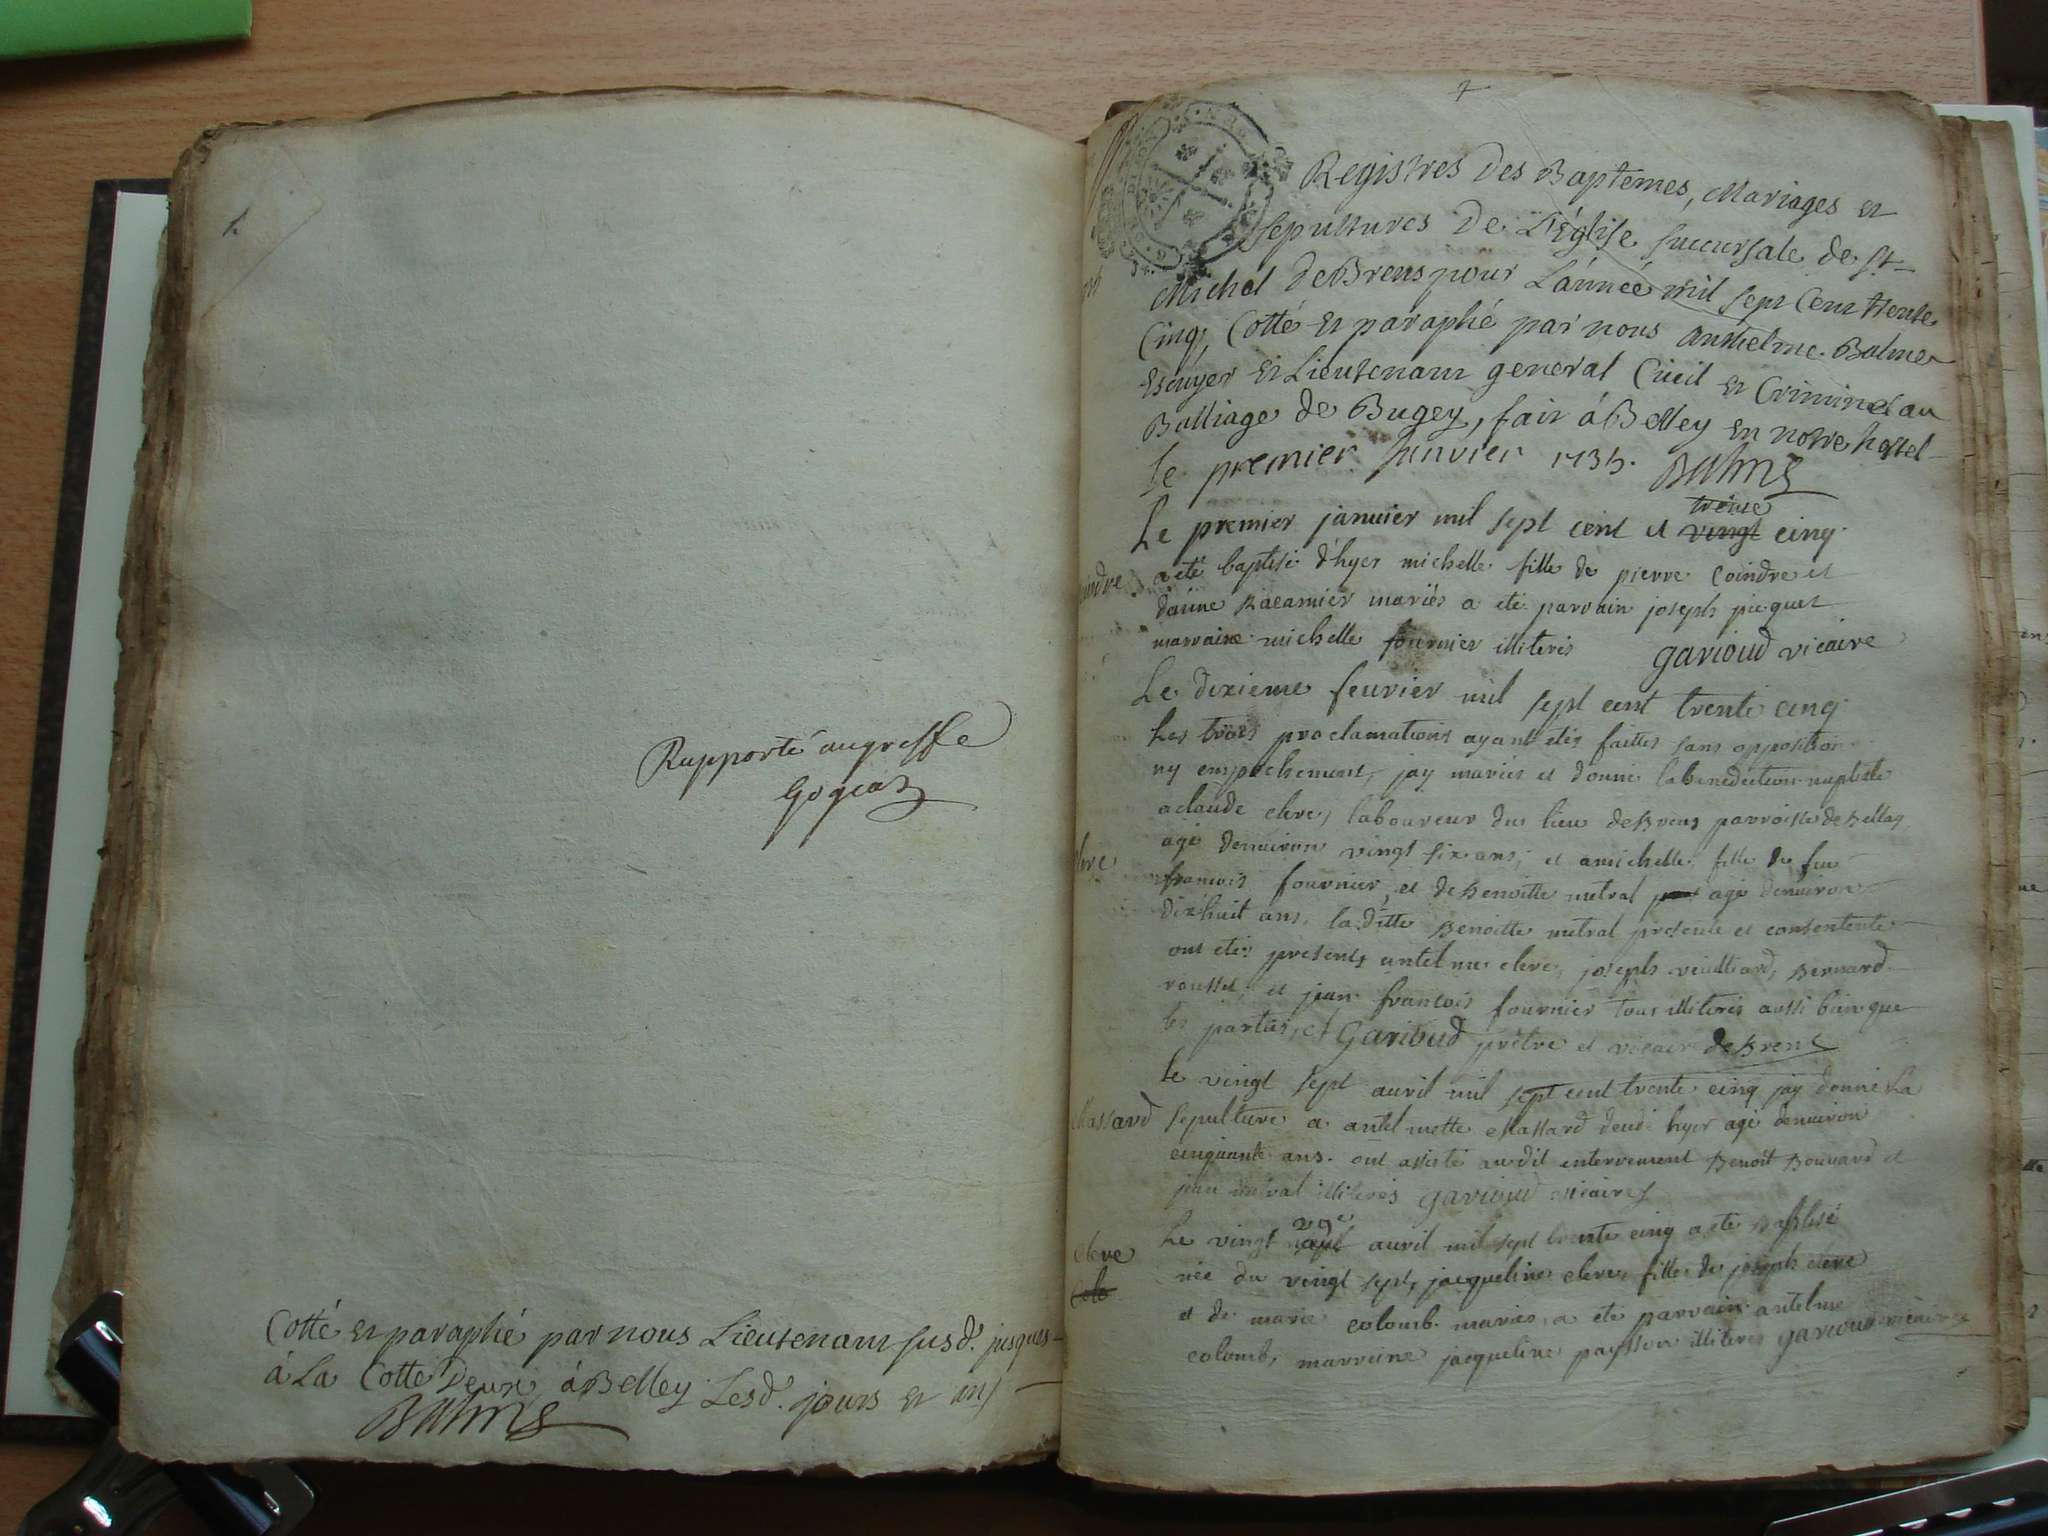 Rapporté au greffe
Cotté et paraphé par nous Lieutenant susd. jusques
à La Cotte Deux, à Belley Lesd. jours et an
Balme
Registres Des Baptemes, Mariages et
sepultures De L'Église succursale de St
Michel de Brens pour L'année mil sept Cent trente
Cinq, Cotté et paraphé par nous Anthelme Balme
Escuyer et Lieutenant general Civil et Criminel au
Balliage de Bugey, fait à Belley en notre hostel
Le premier Janvier 1735. Balme
trente
Le premier janvier mil sept cent et vingt cinq
a eté baptisé d'hyer michelle fille de pierre Coindre et
danne Racamier mariés a eté parrain joseph piquet
marraine michelle fournier illiterés garioud vicaire
Le dixieme feuvrier mil sept cent trente cinq
Les trois proclamations ayant etés faittes sans opposition
ny empechement, jay mariés et donné la benediction nuptiale
a claude clerc, laboureur du lieu de Brens parroisse de Belley
agé denuiron vingt six ans, et a michelle fille de feu
francois fournier, et de benoitte metral agé denuiron
dixhuit ans. la ditte Benoitte metral presente et consentente
ont etés presents antelme clerc, joseph Bernard
rousset, et jean francois fournier tous illiterés aussi bien que
les parties, et Garioud prêtre et vicaire de Brens
Le vingt sept auril mil sept cent trente cinq jay donné La
Massard sepulture a antelmette Massard hyer agé denuiron
cinquante ans. ont assisté audit enterrement Benoit Bouvard et
jean metral illiterés garioud vicaire
29e
Clerc Le vingt sept auril mil sept trente cinq a eté Baptisé
née du vingt sept, jacqueline clerc, fille de joseph clerc
et de marie colomb mariés, a eté parrain antelme
colomb, marreine jacqueline paysson illiterés garioud vicaire